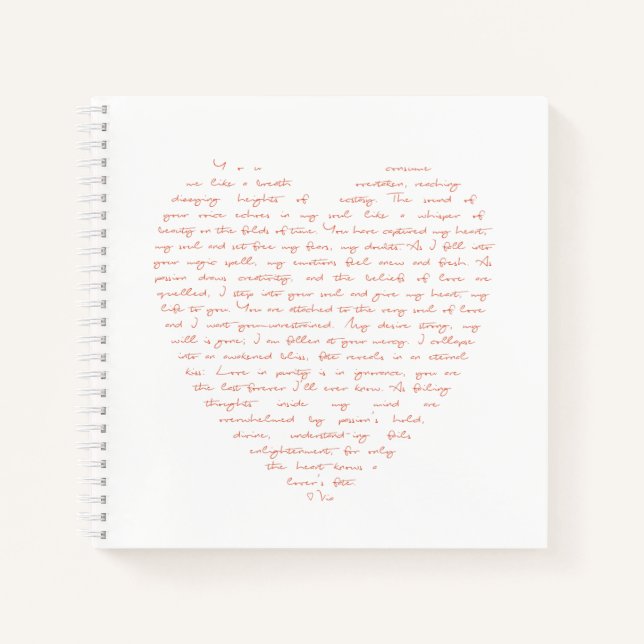 You consume
me like a breath overtaken, reaching
dizzying heights of ecstasy. The sound of
your voice echoes in my soul like a whisper of
beauty on the folds of time. You have captured my heart,
my soul and set free my fears, my doubts. As I fall into
your magic spell, my emotions feel anew and fresh. As
passion draws creativity, and the beliefs of love are
quelled, I step into your soul and give my heart, my
life to you. You are attached to the very soul of love
and I want you-unrestrained. My desire strong, my
will is gone; I am fallen at your mercy. I collapse
into an awakened bliss, fate reveals in an eternal
kiss: Love in purity is in ignorance, you are
the last forever I'll ever know. As foiling
thoughts inside my mind are
overwhelmed by passion's hold,
divine, understand-ing foils
enlightenment, for only
the heart knows a
lover's fate.
Via